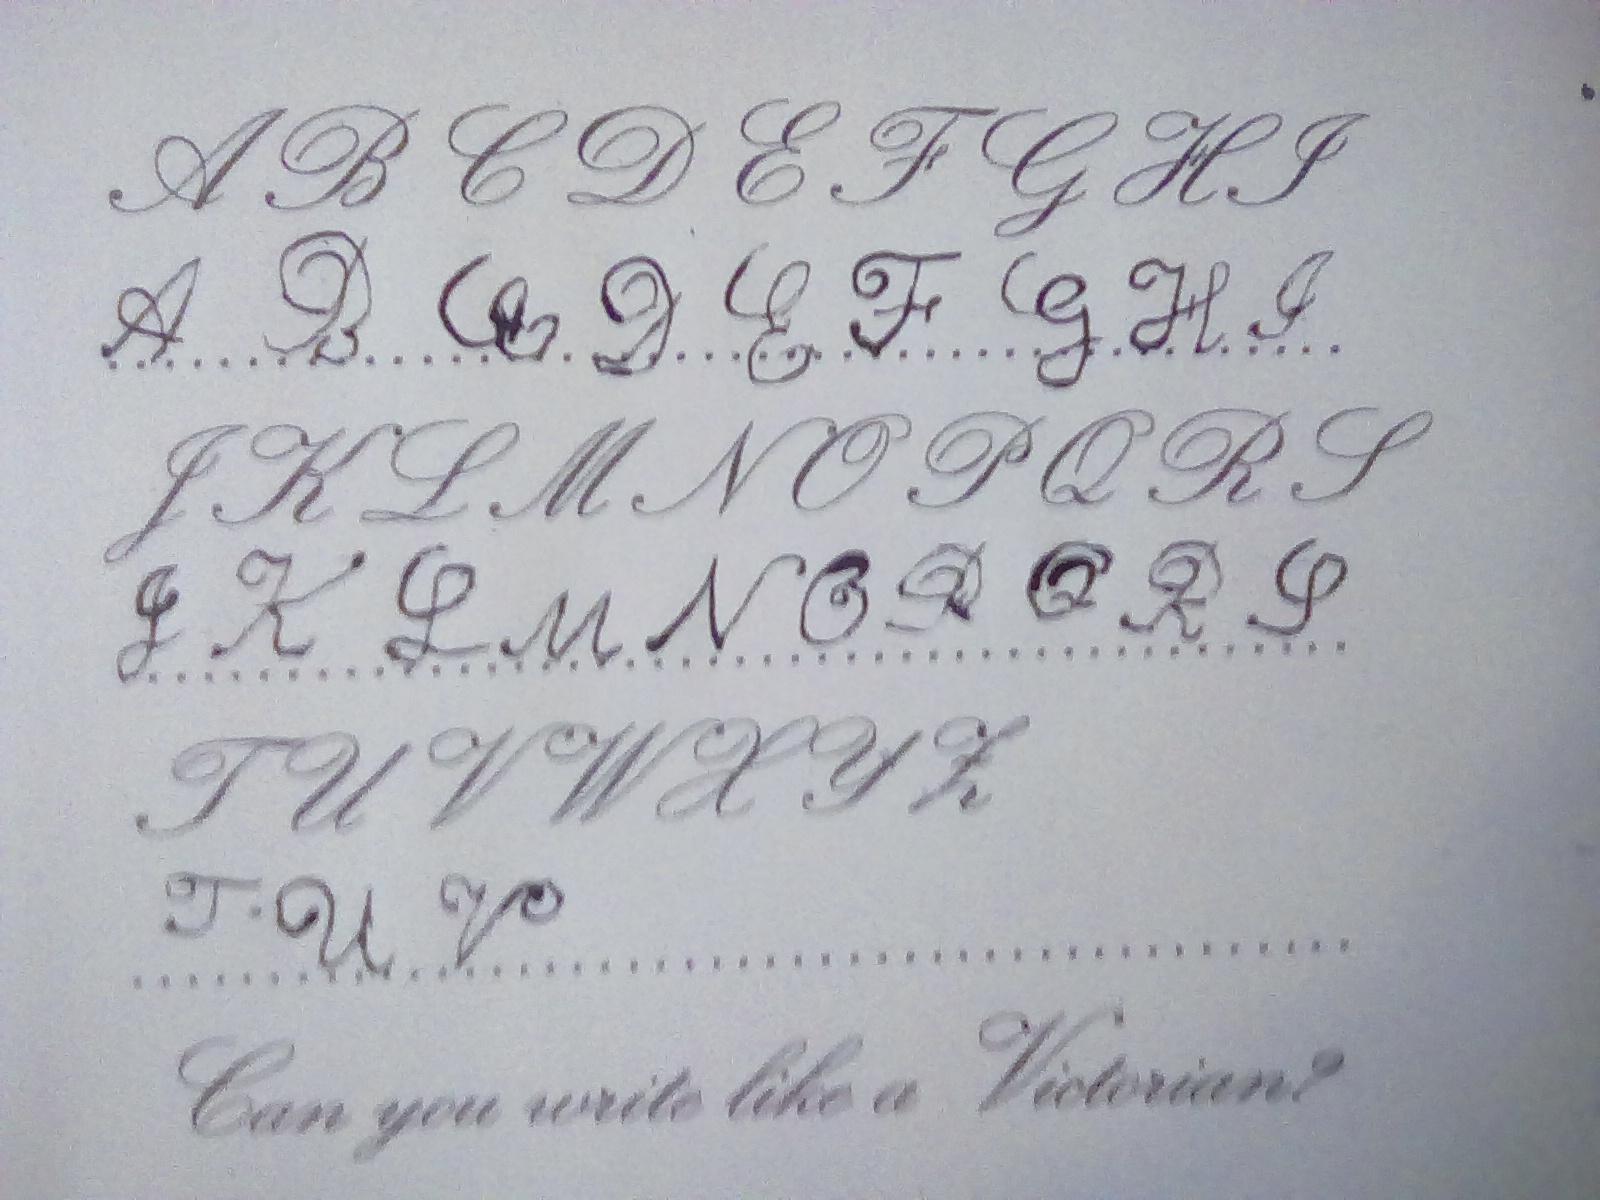 A B C D E F G H I
A B C D E F G H I
J K L M N O P Q R S
J K L M N O P Q R S
T U V W X Y Z
T U V
Can you write like a Victorian?